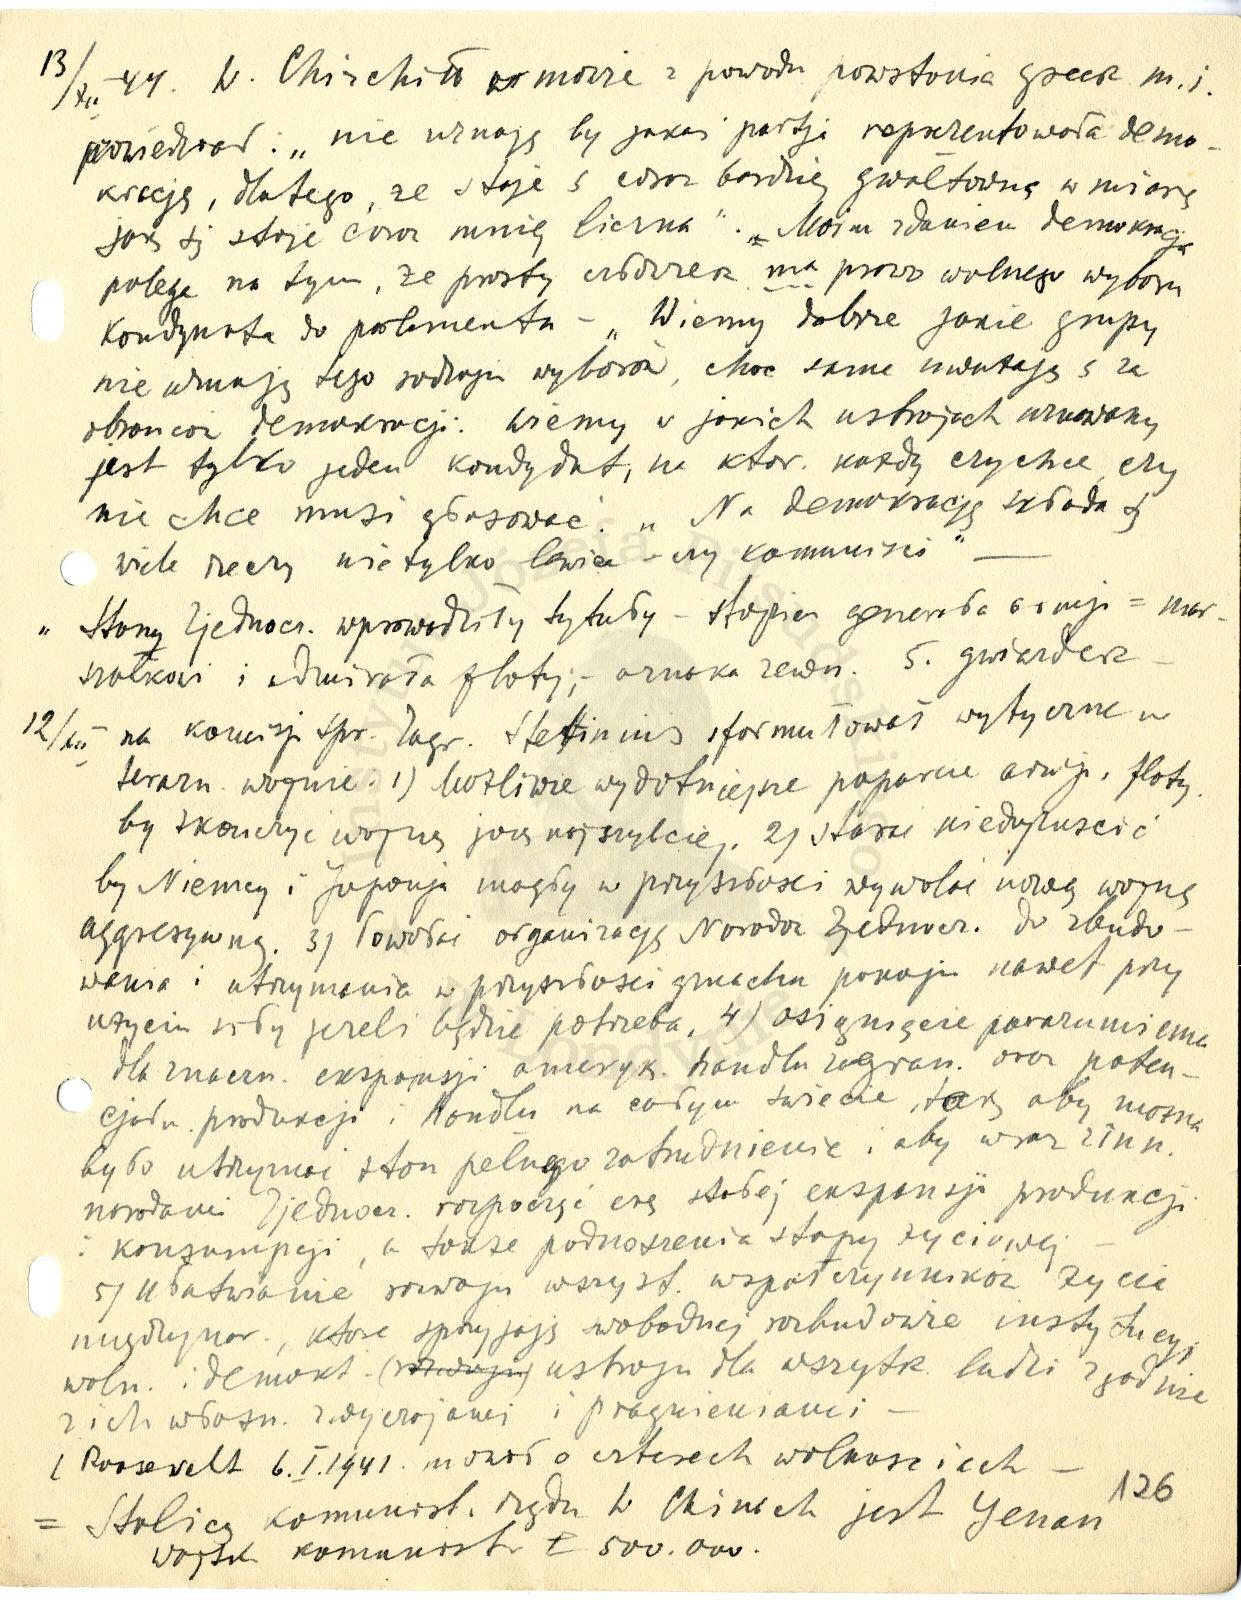 13/XII 44. W. Chirchill w mowie z powodu powstania greck. m. i.
powiedział: „nie uznaję by jakaś partja reprezentowała demo-
krację, dlatego, że staje s coraz bardziej gwałtowną w miarę
jak się staje coraz mniej liczna". „Moim zdaniem demokracja
polega na tym, że prosty człowiek ma prawo wolnego wyboru
kandydata do parlamentu – „Wiemy dobrze jakie grupy
nie uznają tego rodzaju wyborów, choć same uważają s za
obrońców demokracji. Wiemy w jakich ustrojach uznawany
jest tylko jeden kandydat, na któr. każdy czy chce, czy
nie chce musi głosować. „Na demokrację składa się
wiele rzeczy nietylko lewica – czy komuniści" —
„ Stany Zjednocz. wprowadziły tytuły – stopień generała armji = mar-
szałkowi i admirała floty; – oznaka zewn. 5. gwiazdek –
12/XII na komisji Spr. Zagr. Stettinius sformułował wytyczne w
terazn. wojnie: 1) Możliwie wydatniejsze poparcie armji, floty,
by skończyć wojnę jak najszybciej. 2) starać niedopuścić
by Niemcy i Japonja mogły w przyszłości wywołać nową wojnę
aggresywną. 3) Powołać organizację Narodów Zjednocz. do zbudo-
wania i utrzymania w przyszłości gmachu pokoju nawet przy
użyciu siły jeżeli będzie potrzeba. 4) osiągnięcie porozumienia
dla znaczn. ekspansji ameryk. handlu zagran. oraz poten-
cjału produkcji i handlu na całym świecie, tak, aby można
było utrzymać stan pełnego zatrudnienie i aby wraz z inn.
narodami Zjednocz. rozpocząć erę stałej ekspansji produkcji
i konsumpcji, a także podnoszenia stopy życiowej –
5) Ułatwianie rozwoju wszyst. współczynników życia
międzynar., które sprzyjają swobodnej rozbudowie instytucyj
woln. i demokr. (rozwoju) ustroju dla wszystk. ludzi zgodnie
z ich własn. zwyczajami i pragnieniami –
( Roosevelt 6.I.1941. mówił o czterech wolnościach –
= Stolicą komunist. rządu w Chinach jest Yenan
126
wojsk komunist. ± 500.000.